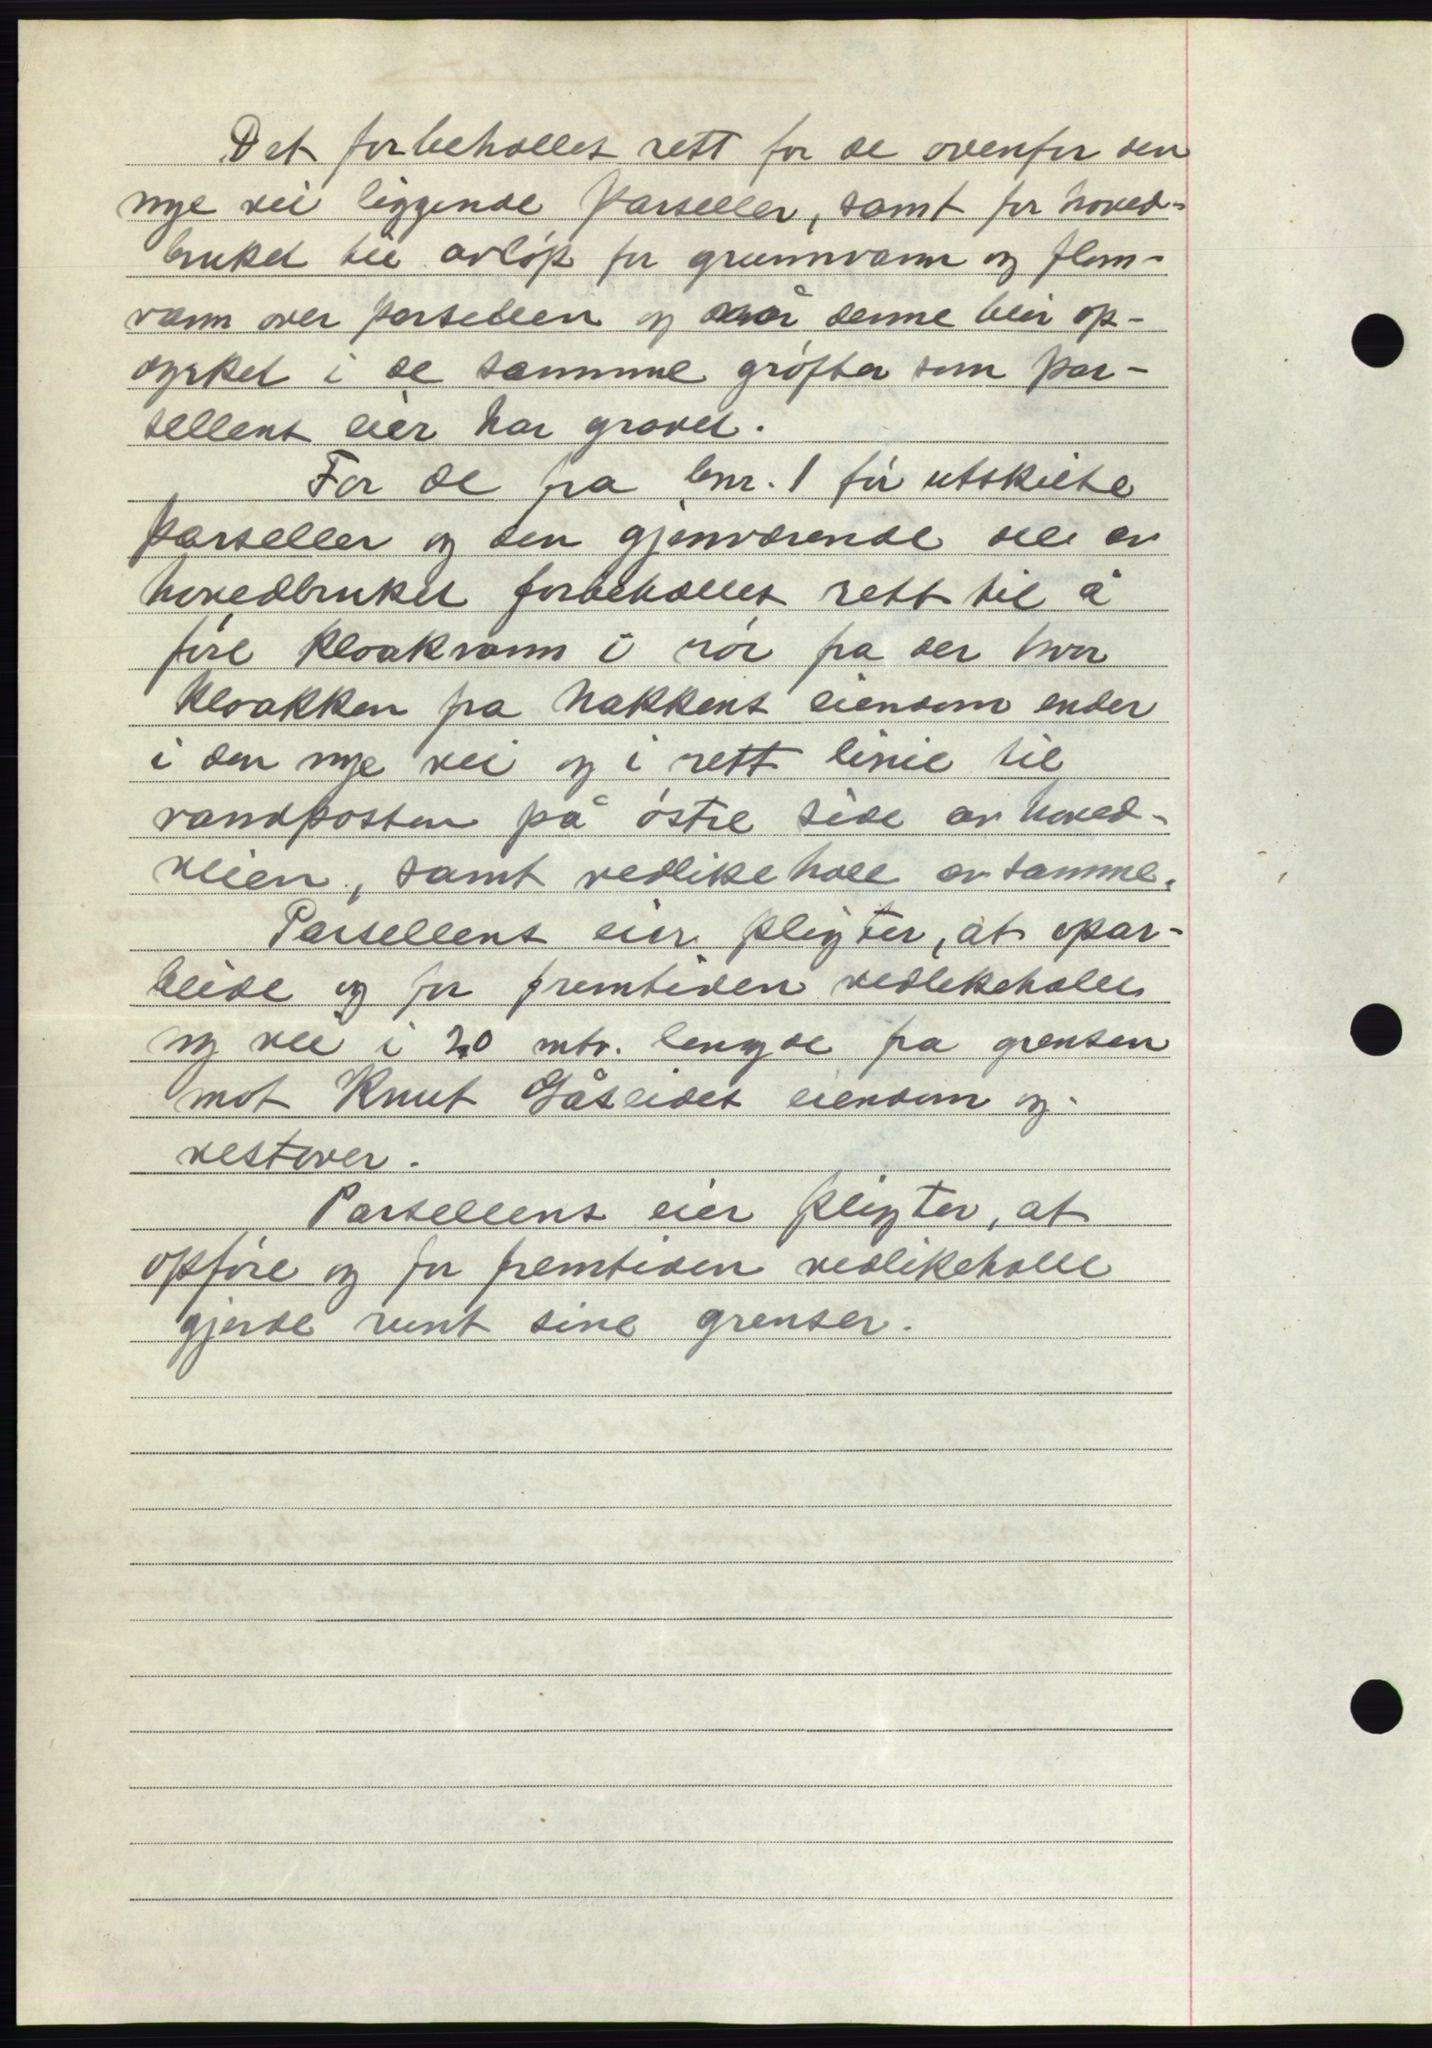 Det forbeholles rett for de ovenfor den
nye vei liggende parseller, samt for hoved-
bruket til avløp for grunnvann og flom-
vann over parsellen og når denne blir op-
dyrket i de sammme grøfter som par-
sellens eier har gravet.
For de fra bnr. 1 før utskilte
parseller og den gjenværende del av
hovedbruket forbeholles rett til å
føre kloakvann i rør fra der hvor
kloakken fra Nakkens eiendom ender
i den nye vei og i rett linie til
vandposten på østre side av hoved-
veien, samt vedlikeholl av samme.
Parsellens eier pligter, at opar-
beide og for fremtiden vedlikeholle
ny vei i 20 mtr. lengde fra grensen
mot Knut Gåseides eiendom og
vestover.
Parsellens eier pligter, at
opføre og for fremtiden vedlikeholle
gjerde rundt sine grenser.